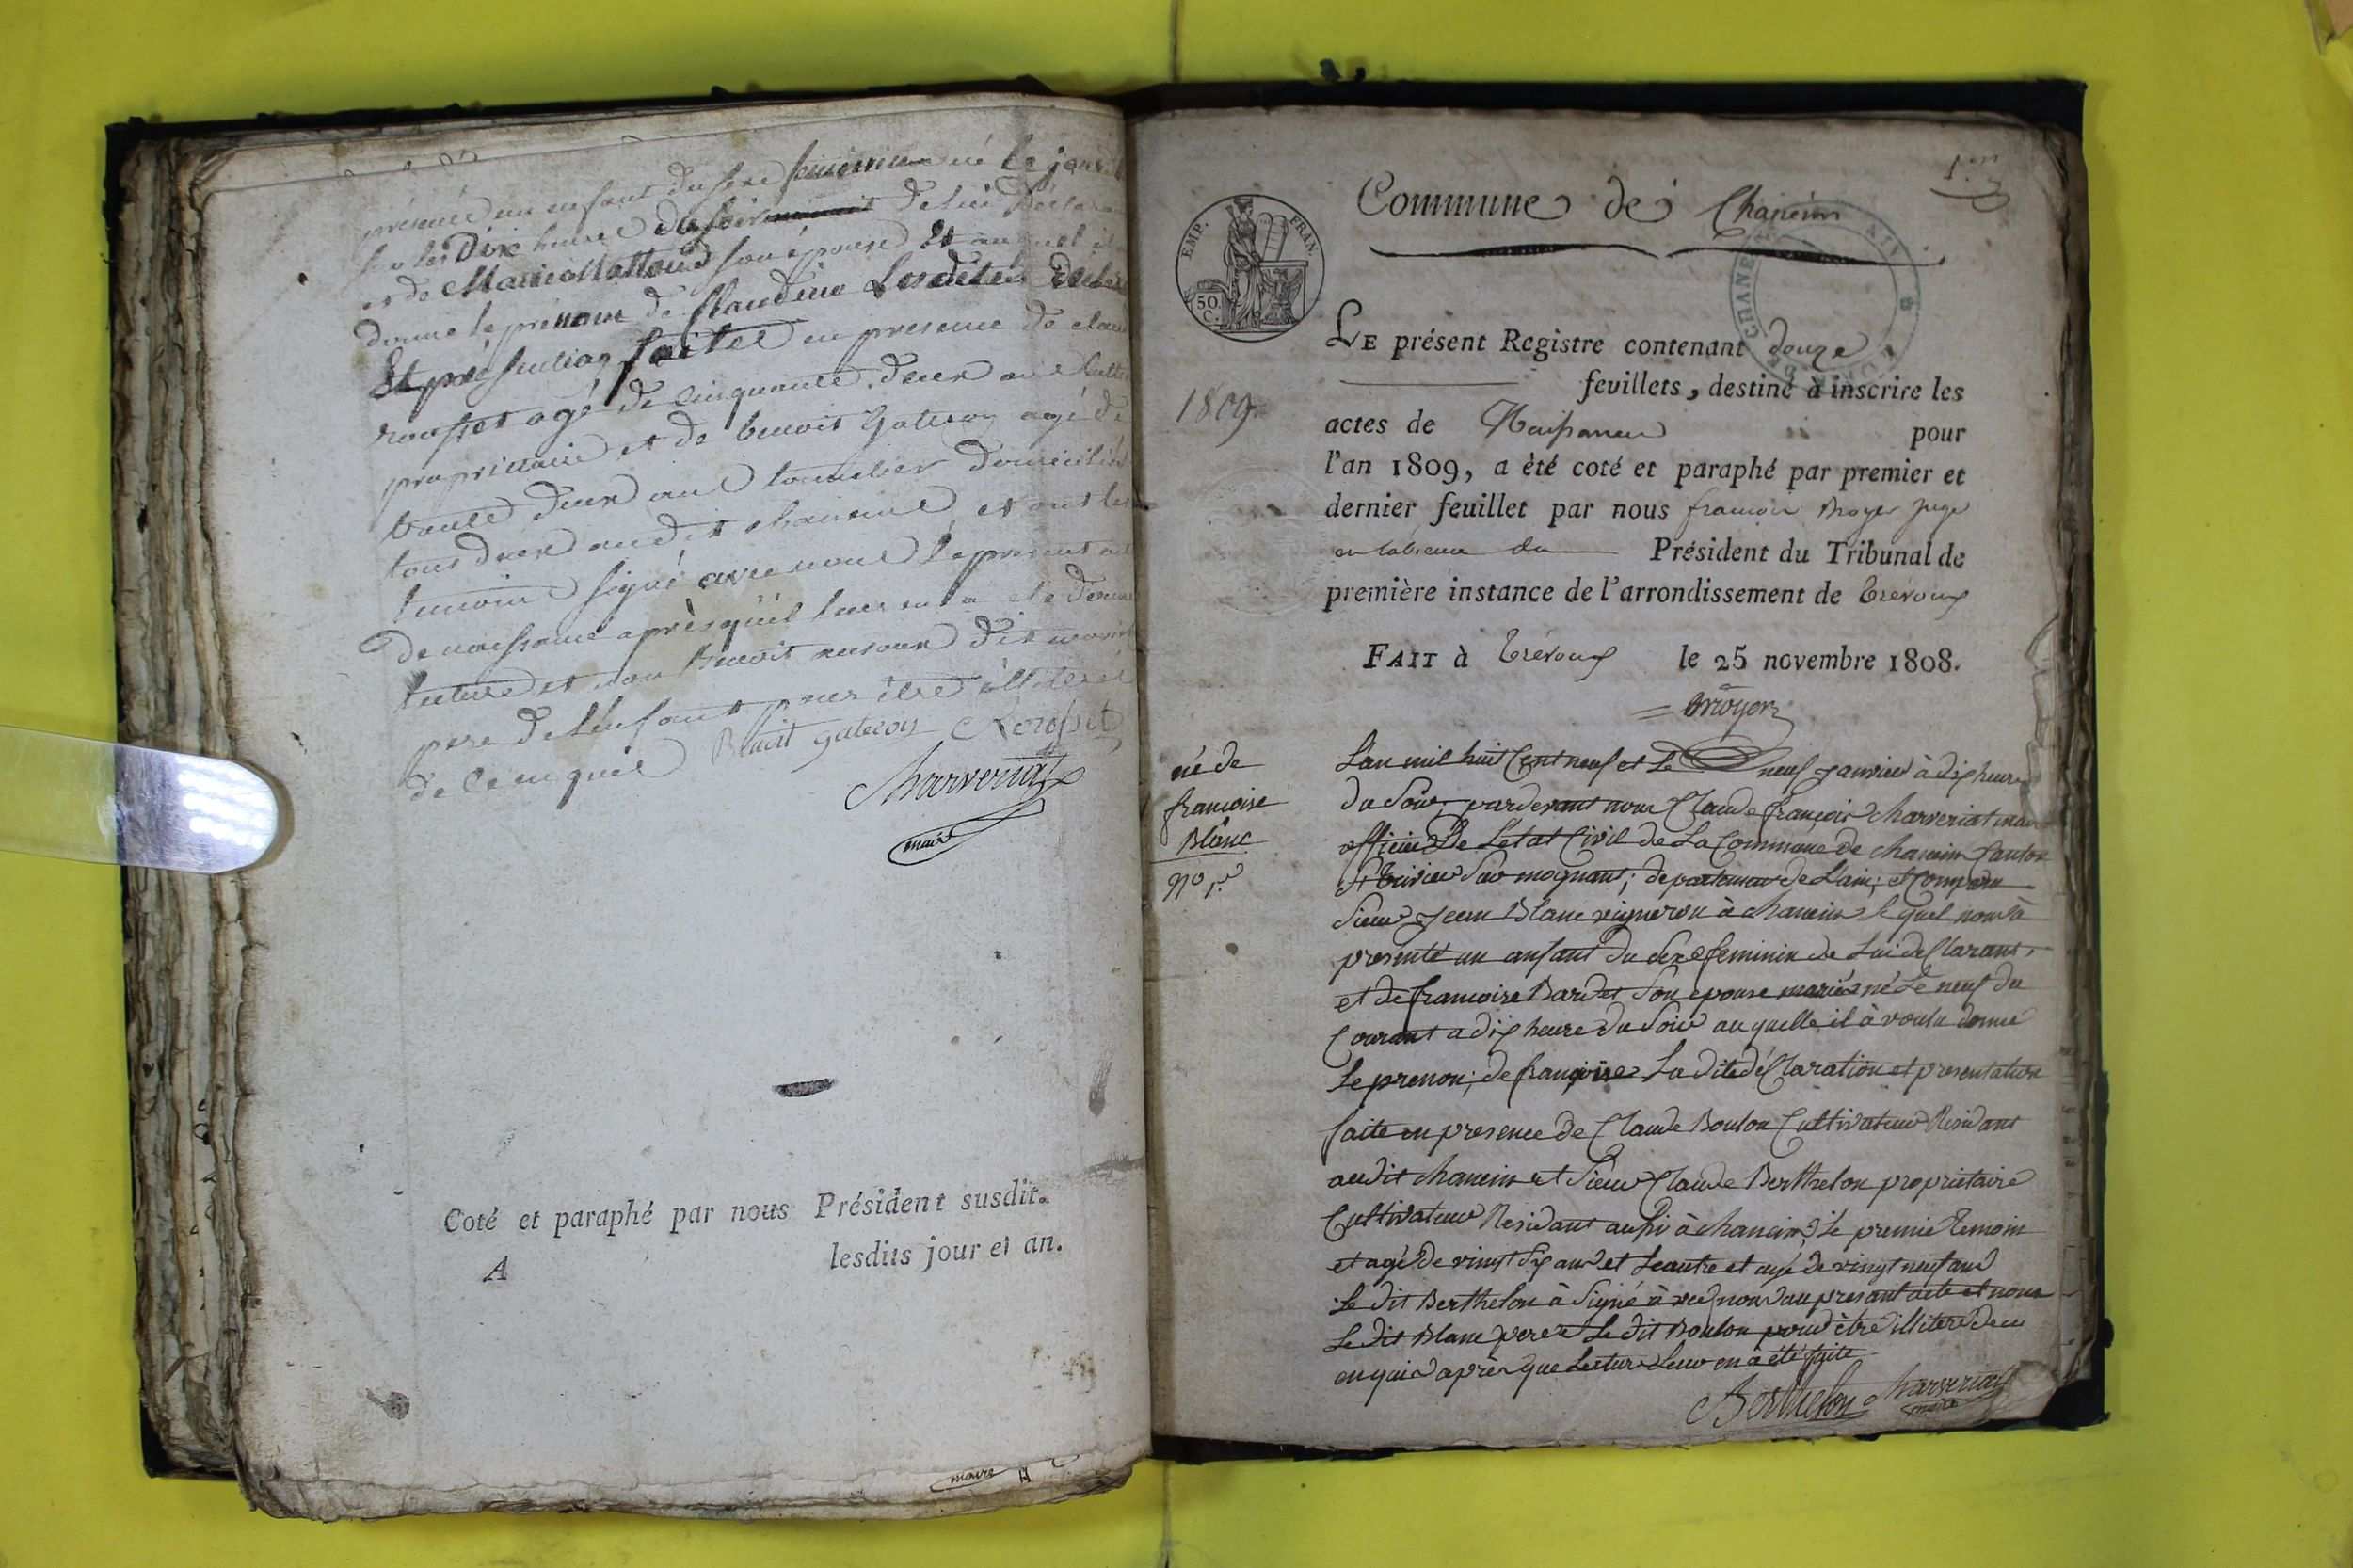 présenté un enfant du sexe feminin né le jour
les Dix heures du soir de lui Déclarant
et de Marie Mattoud son épouse et auquel il
donné le prénom de Claudine Les dites
Et présentation faites en presence de claude
rousset agé de cinquante deux ans
propriétaire et de benoit Galleron agé de
trente deux ans tonnelier domiciliés
tous deux audit chaneins et ont les
temoins signé avec nous le present acte
de naissance après qu'il leur en a été donné
lecture et non benoit
pere de l'enfant pour être illiteré
de ce enquis Benoit galeron Rousset
Charveriat
maire
Coté et paraphé par nous Président susdit.
A lesdits jour et an.
maire
1.er
Commune de Chaneins
EMP. FRAN.
50 C.
LE présent Registre contenant douze
feuillets, destiné à inscrire les
1809
actes de Naissances pour
l'an 1809, a èté coté et paraphé par premier et
dernier feuillet par nous francois Broyer Juge
en labsence du Président du Tribunal de
première instance de l'arrondissement de Trévoux
FAIT à Trévoux le 25 novembre 1808.
Broyer
né de
francoise
Blanc
N° 1.er
L'an mil huit Cent neuf et Le neuf Janvier à dix heures
du Soir, pardevant nous Claude françois Charveriat maire
officier De L'etat Civil de La Commune de chaneins Canton
St trivier Sur mognant; departemant de L'ain; et Comparu
Sieur Jean Blanc vigneron à chaneins le quel nous à
presenté un anfant du Sexe feminin de Lui de Clarant,
et de francoise Bardet Son epouse mariés né Le neuf du
Courant a dix heure du Soir au quelle il à voulu donné
Le prenon; de françoise La dite déClaration et presentation
faite en presence de Claude Boulon Cultivateur Residant
audit chaneins et Sieur Claude Berthelon proprietaire
Cultivateur Residant aussi à chaneins, le premie temoin
et agé de vingt Six ans et Leautre et agé de vingt neuf ans
Le dit Berthelon à Signé à vec nous au presant acte et nons
Le dit Blanc pere et Le dit Boulon pour être illiteré de ce
enquis après que Lecture Leur en à été faite
Berthelon Charveriat
maire